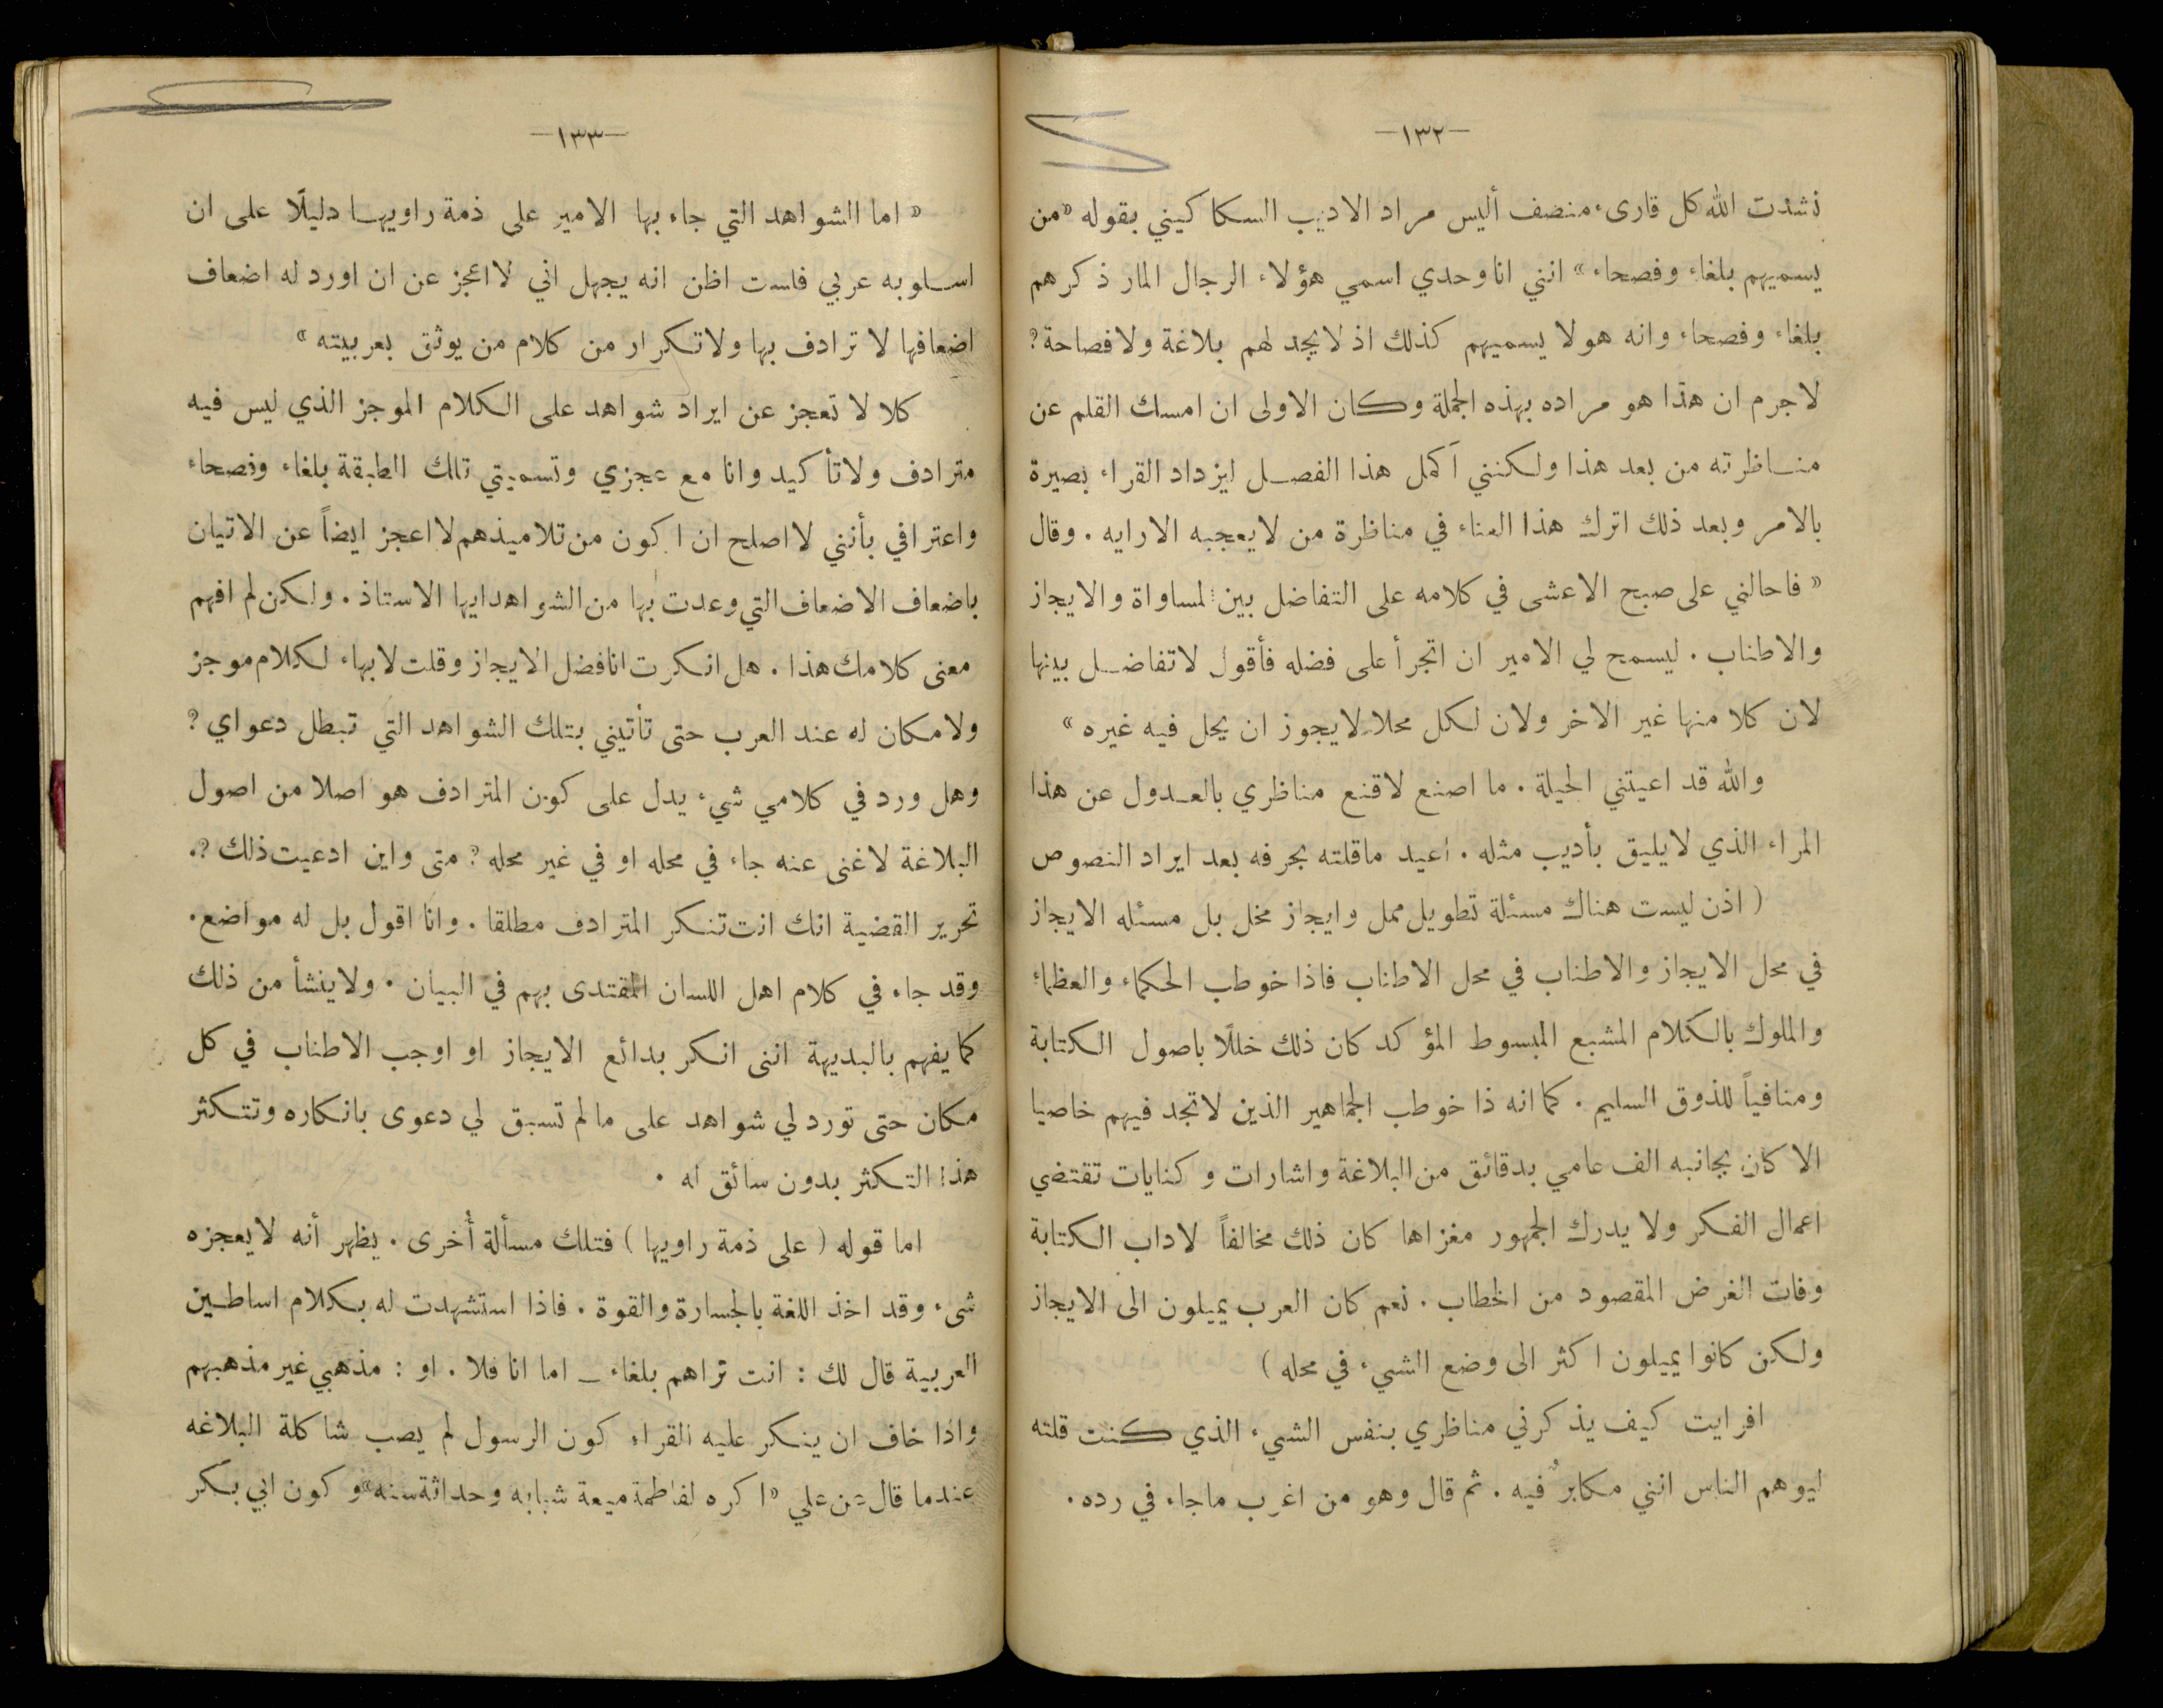 —١٣٢—
نشدت الله كل قارىء منصف أليس مراد الاديب السكاكيني بقوله «من
يسميهم بلغاء وفصحاء» انني انا وحدي اسمي هؤلاء الرجال المار ذكرهم
بلغاء وفصحاء وانه هو لا يسميهم كذلك اذ لا يجد لهم بلاغة ولا فصاحة؟
لا جرم ان هذا هو مراده بهذه الجملة وكان الاولى ان امسك القلم عن
مناظرته من بعد هذا ولكنني آكمل هذا الفصل ليزداد القراء بصيرة
بالامر وبعد ذلك اترك هذا العناء في مناظرة من لا يعجبه الا رايه . وقال
« فاحالني على صبح الاعشى في كلامه على التفاضل بين المساواة والايجاز
والاطناب . ليسمح لي الامير ان اتجرأ على فضله فأقول لا تفاضل بينها
لان كلا منها غير الاخر ولان لكل محلا لا يجوز ان يحل فيه غيره »
والله قد اعيتني الحيلة . ما اصنع لاقنع مناظري بالعدول عن هذا
المراء الذي لا يليق بأديب مثله . اعيد ما قلته بحرفه بعد ايراد النصوص
( اذن ليست هناك مسئلة تطويل ممل وايجاز مخل بل مسئله الايجاز
في محل الايجاز والاطناب في محل الاطناب فاذا خوطب الحكماء والعظماء
والملوك بالكلام المشبع المبسوط المؤكد كان ذلك خللًا باصول الكتابة
ومنافياً للذوق السليم . كما انه ذا خوطب الجماهير الذين لا تجد فيهم خاصيا
الا كان بجانبه الف عامي بدقائق من البلاغة واشارات وكنايات تقتضي
اعمال الفكر ولا يدرك الجمهور مغزاها كان ذلك مخالفاً لاداب الكتابة
وفات الغرض المقصود من الخطاب . نعم كان العرب يميلون الى الايجاز
ولكن كانوا يميلون اكثر الى وضع الشيء في محله )
افرايت كيف يذكرني مناظري بنفس الشيء الذي كنت قلته
ليوهم الناس انني مكابرٌ فيه . ثم قال وهو من اغرب ما جاء في رده .
—١٣٣—
« اما الشواهد التي جاء بها الامير على ذمة راويها دليلًا على ان
اسلوبه عربي فلست اظن انه يجهل اني لا اعجز عن ان اورد له اضعاف
اضعافها لا ترادف بها ولا تكرار من كلام من يوثق بعربيته »
كلا لا تعجز عن ايراد شواهد على الكلام الموجز الذي ليس فيه
مترادف ولا تأكيد وانا مع عجزي وتسميتي تلك الطبقة بلغاء وفصحاء
واعترافي بأنني لا اصلح ان اكون من تلاميذهم لا اعجز ايضاً عن الاتيان
باضعاف الاضعاف التي وعدت بها من الشواهد ايها الاستاذ . ولكن لم افهم
معنى كلامك هذا . هل انكرت انا فضل الايجاز وقلت لا بهاء لكلام موجز
ولا مكان له عند العرب حتى تأتيني بتلك الشواهد التي تبطل دعواي ؟
وهل ورد في كلامي شيء يدل على كون المترادف هو اصلا من اصول
البلاغة لا غنى عنه جاء في محله او في غير محله ؟ متى واين ادعيت ذلك ؟.
تحرير القضية انك انت تنكر المترادف مطلقا . وانا اقول بل له مواضع.
وقد جاء في كلام اهل اللسان المقتدى بهم في البيان . ولا ينشأ من ذلك
كما يفهم بالبديهة انني انكر بدائع الايجاز او اوجب الاطناب في كل
مكان حتى تورد لي شواهد على ما لم تسبق لي دعوى بانكاره وتتكثر
هذا التكثر بدون سائق له .
اما قوله ( على ذمة راويها ) فتلك مسألة أُخرى . يظهر أنه لا يعجزه
شىء وقد اخذ اللغة بالجسارة والقوة . فاذا استشهدت له بكلام اساطين
العربية قال لك : انت تراهم بلغاء – اما انا فلا . او : مذهبي غير مذهبهم
واذا خاف ان ينكر عليه القراء كون الرسول لم يصب شاكلة البلاغه
عندما قال عن علي «اكره لفاطمة ميعة شبابه وحداثة سنه» وكون ابي بكر